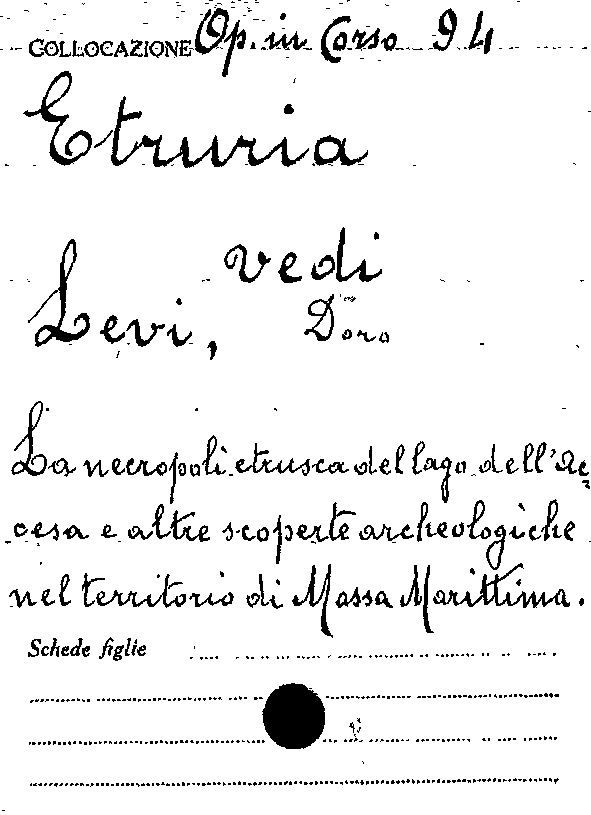 COLLOCAZIONE Op. in Corso 94
Etruria
vedi
Levi, Doro
La necropoli etrusca del lago dell'Ac-
cesa e altre scoperte archeologiche
nel territorio di Massa Marittima.
Schede figlie